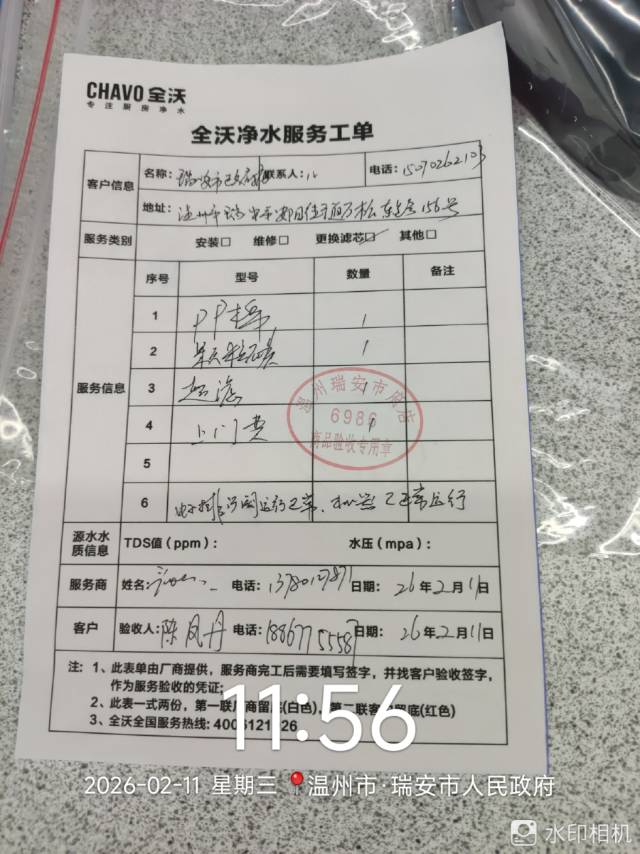 CHAVO 全沃
专注厨房净水
全沃净水服务工单
客户信息
名称: 瑞安市
联系人:
电话: 15070262103
地址: 156号
服务类别 安装□ 维修□ 更换滤芯☑ 其他□
服务信息
序号 型号 数量 备注
1 PP棉 1
2 1
3 超滤 1
4 上门费
5
6 运行正常、 正常运行
温州瑞安市府店
6986
商品验收专用章
源水水质信息 TDS值(ppm): 水压(mpa):
服务商 姓名: 电话: 日期: 26年2月11日
客户 验收人: 陈凤丹 电话: 18867755587 日期: 26年2月11日
注: 1、此表单由厂商提供,服务商完工后需要填写签字,并找客户验收签字,
作为服务验收的凭证;
2、此表一式两份,第一联厂商留底(白色)、第二联客户留底(红色)
3、全沃全国服务热线: 4006121826
11:56
2026-02-11 星期三 温州市·瑞安市人民政府
水印相机